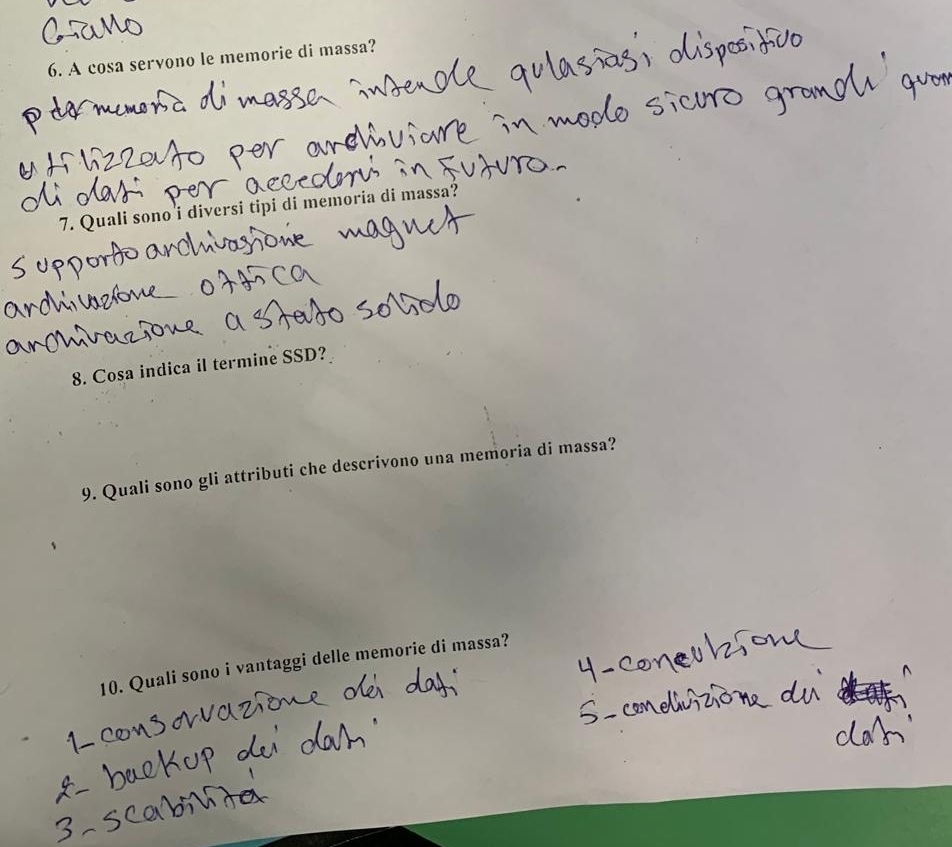 Giallo
6. A cosa servono le memorie di massa?
memoria di massa intende qulasiasi dispositivo
utilizzato per archiviare in modo sicuro grandi quan
di dati per accedervi in futuro.
7. Quali sono i diversi tipi di memoria di massa?
supporto archiviasione magnet
archiviazione ottica
archivazione a stato solido
8. Cosa indica il termine SSD?
9. Quali sono gli attributi che descrivono una memoria di massa?
10. Quali sono i vantaggi delle memorie di massa?
1- conservazione dei dati
2- backup dei dati
3- scabilità
4-
5- condivizione dei
dati